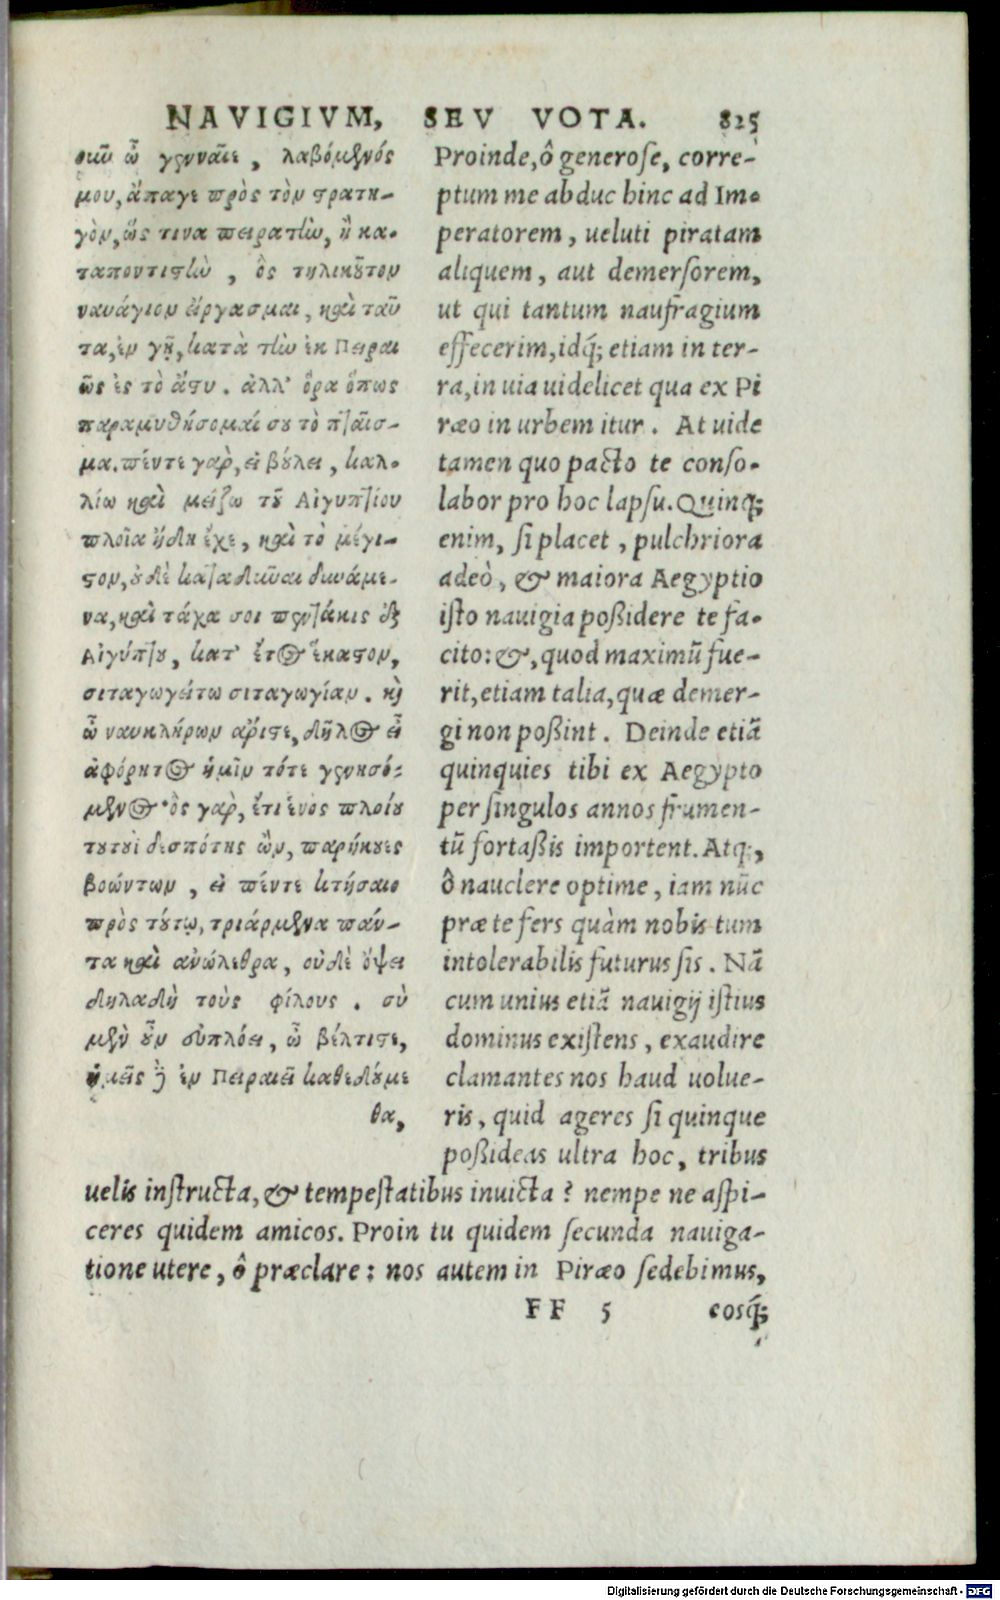 NAVIGIVM, SEV VOTA. 825
οιωῦ ὦ γενναῖε, λαβόμενός
μου, ἄπαγε πρὸς τὸν στρατη-
γὸν, ὥς τινα πειρατὴν, ἢ κα-
ταποντιστὴν, ὃς τηλικοῦτον
ναυάγιον εἴργασμαι, καὶ ταῦ
τα, ἐν γῇ, κατὰ τὴν ἐκ Πειραι
ῶς ἐς τὸ ἄστυ. ἀλλ' ὅρα ὅπως
παραμυθήσομαί σου τὸ πταῖσ-
μα. πέντε γὰρ, εἰ βούλει, καλ-
λίω καὶ μείζω τοῦ Αἰγυπτίου
πλοῖα ἤδη ἔχε, καὶ τὸ μέγι-
στον, οὐδὲ καταδῦναι δυνάμε-
να, καὶ τάχα σοι πεντάκις ἐξ
Αἰγύπτου, κατ' ἔτος ἕκαστον,
σιταγωγείτω σιταγωγίαν. καὶ
ὦ ναυκλήρων ἄριστε, δῆλος εἶ
ἀφόρητος ἡμῖν τότε γενησό-
μενος· ὃς γὰρ, ἔτι ἑνὸς πλοίου
τουτουὶ δεσπότης ὢν, παρήκουες
βοώντων, εἰ πέντε κτήσαιο
πρὸς τούτῳ, τριάρμενα πάν-
τα καὶ ἀνώλεθρα, οὐδὲ ὄψει
δηλαδὴ τοὺς φίλους. σὺ
μὲν οὖν εὐπλόει, ὦ βέλτιστε,
ἡμεῖς δὲ ἐν Πειραιεῖ καθεδούμε
θα,
Proinde, ô generose, corre-
ptum me abduc hinc ad Im-
peratorem, ueluti piratam
aliquem, aut demersorem,
ut qui tantum naufragium
effecerim, idq́; etiam in ter-
ra, in uia uidelicet qua ex Pi
ræo in urbem itur. At uide
tamen quo pacto te conso-
labor pro hoc lapsu. Quinq;
enim, si placet, pulchriora
adeò, & maiora Aegyptio
isto nauigia poßidere te fa-
cito: &, quod maximũ fue-
rit, etiam talia, quæ demer-
gi non poßint. Deinde etiã
quinquies tibi ex Aegypto
per singulos annos frumen-
tũ fortaßis importent. Atq;,
ô nauclere optime, iam nũc
præ te fers quàm nobis tum
intolerabilis futurus sis. Nã
cum unius etiã nauigij istius
dominus existens, exaudire
clamantes nos haud uolue-
ris, quid ageres si quinque
poßideas ultra hoc, tribus
uelis instructa, & tempestatibus inuicta? nempe ne aspi-
ceres quidem amicos. Proin tu quidem secunda nauiga-
tione utere, ô præclare: nos autem in Piræo sedebimus,
FF 5 eosq́;
Digitalisierung gefördert durch die Deutsche Forschungsgemeinschaft - DFG